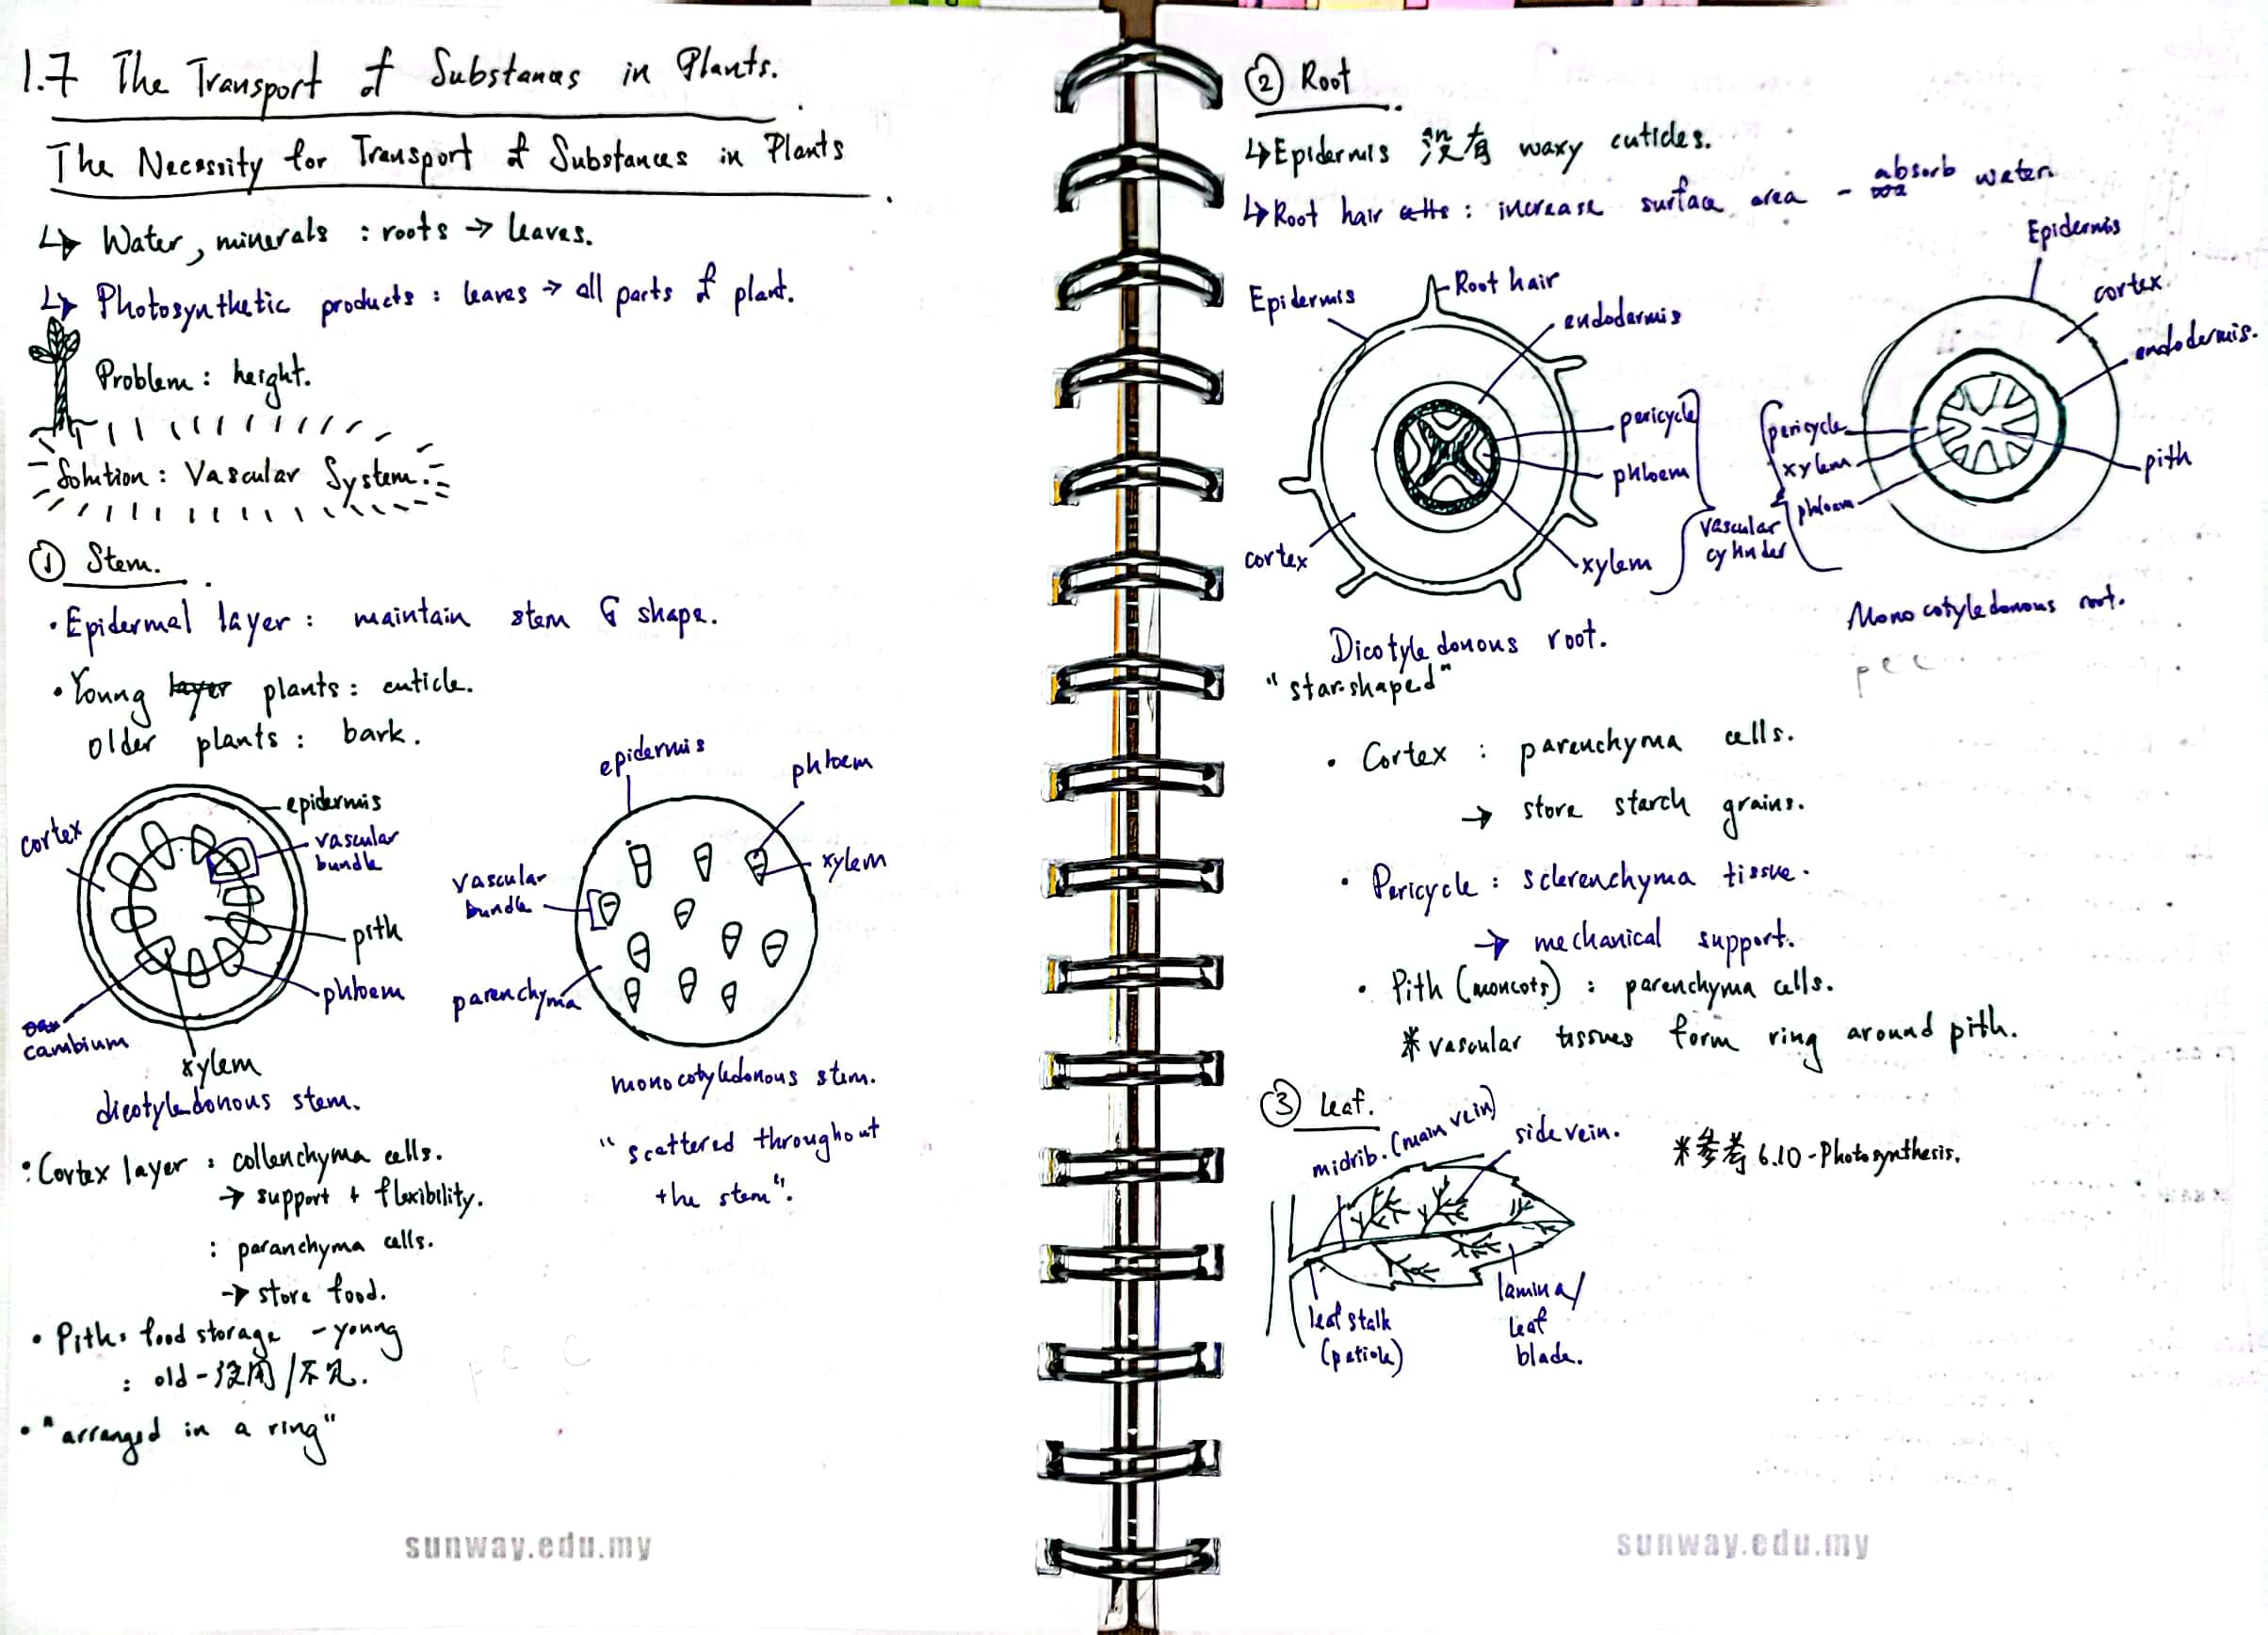 1.7 The Transport of Substances in Plants.
The Necessity for Transport of Substances in Plants
↳ Water, minerals : roots → leaves.
↳ Photosynthetic products : leaves → all parts of plant.
Problem : height.
Solution : Vascular System.
① Stem.
• Epidermal layer : maintain stem 的 shape.
• Young plants : cuticle.
older plants : bark.
epidermis
cortex
vascular
bundle
pith
phloem
cambium
xylem
dicotyledonous stem.
epidermis
phloem
xylem
vascular
bundle
parenchyma
monocotyledonous stem.
"scattered throughout
the stem".
• Cortex layer : collenchyma cells.
→ support + flexibility.
: paranchyma cells.
→ store food.
• Pith : food storage - young
: old - 没用/不见.
• "arranged in a ring"
sunway.edu.my
② Root
↳ Epidermis 没有 waxy cuticles.
↳ Root hair : increase surface area - absorb water.
Epidermis
Root hair
endodermis
pericycle
phloem
xylem
cortex
vascular
cylinder
Dicotyledonous root.
"star-shaped"
Epidermis
cortex
endodermis.
pericycle
xylem
phloem
pith
Monocotyledonous root.
• Cortex : parenchyma cells.
→ store starch grains.
• Pericycle : sclerenchyma tissue.
→ mechanical support.
• Pith (moncots) : parenchyma cells.
* vascular tissues form ring around pith.
③ Leaf.
midrib. (main vein)
side vein.
*参考 6.10 - Photosynthesis.
leaf stalk
(petiole)
lamina/
leaf
blade.
sunway.edu.my